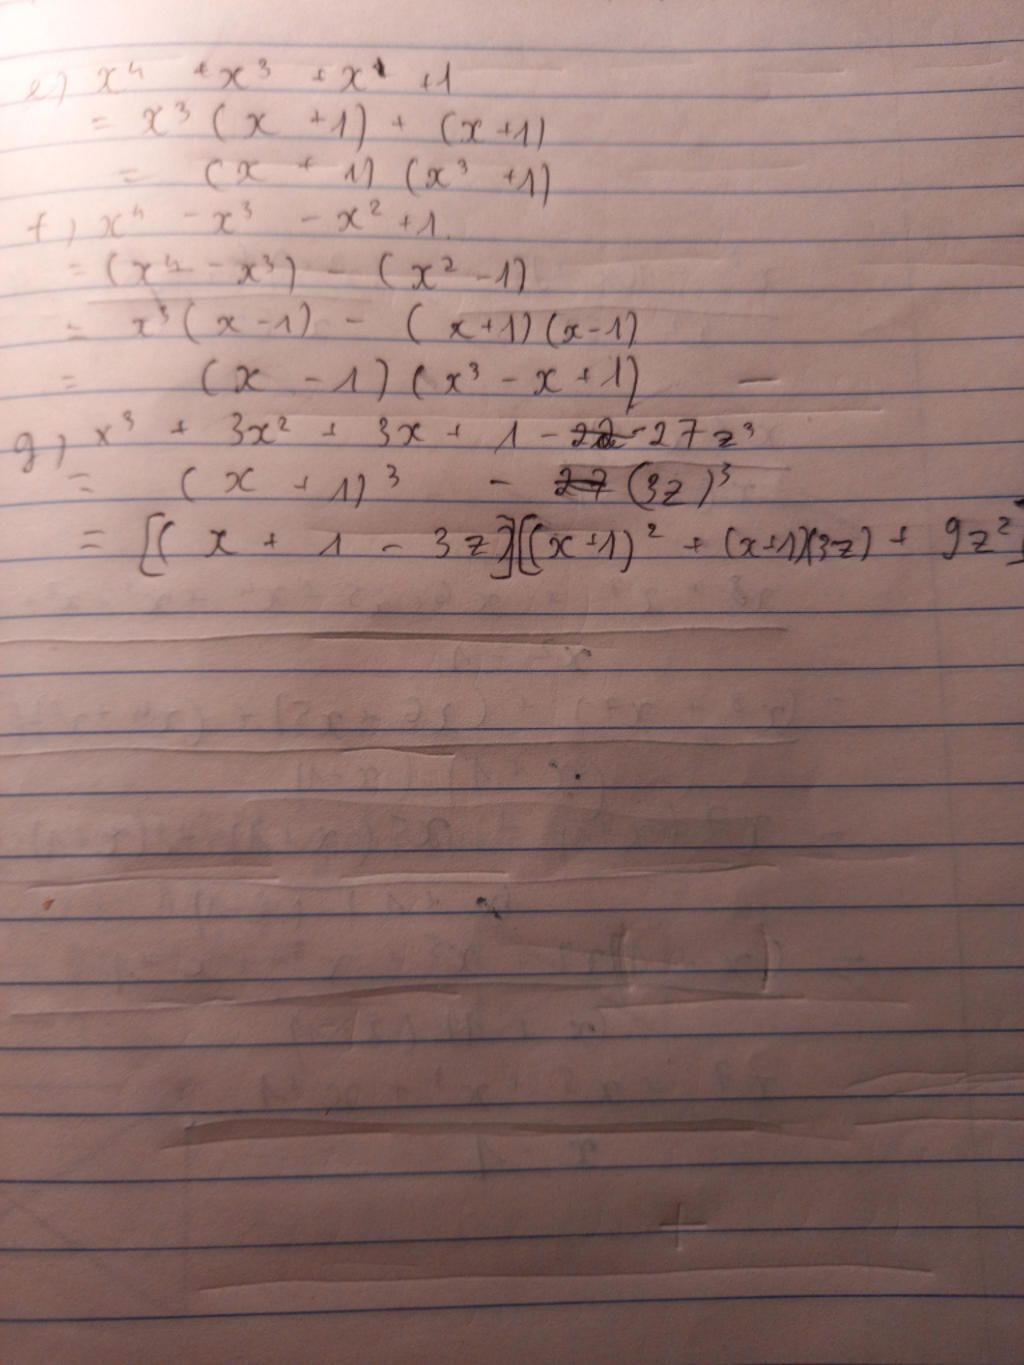 e) x⁴ + x³ + x + 1
= x³ (x + 1) + (x + 1)
= (x + 1) (x³ + 1)
f) x⁴ - x³ - x² + 1
= (x⁴ - x³) - (x² - 1)
= x³ (x - 1) - (x + 1) (x - 1)
= (x - 1) (x³ - x + 1)
g) x³ + 3x² + 3x + 1 - 27z³
= (x + 1)³ - (3z)³
= [(x + 1 - 3z] [(x + 1)² + (x+1)(3z) + 9z²]